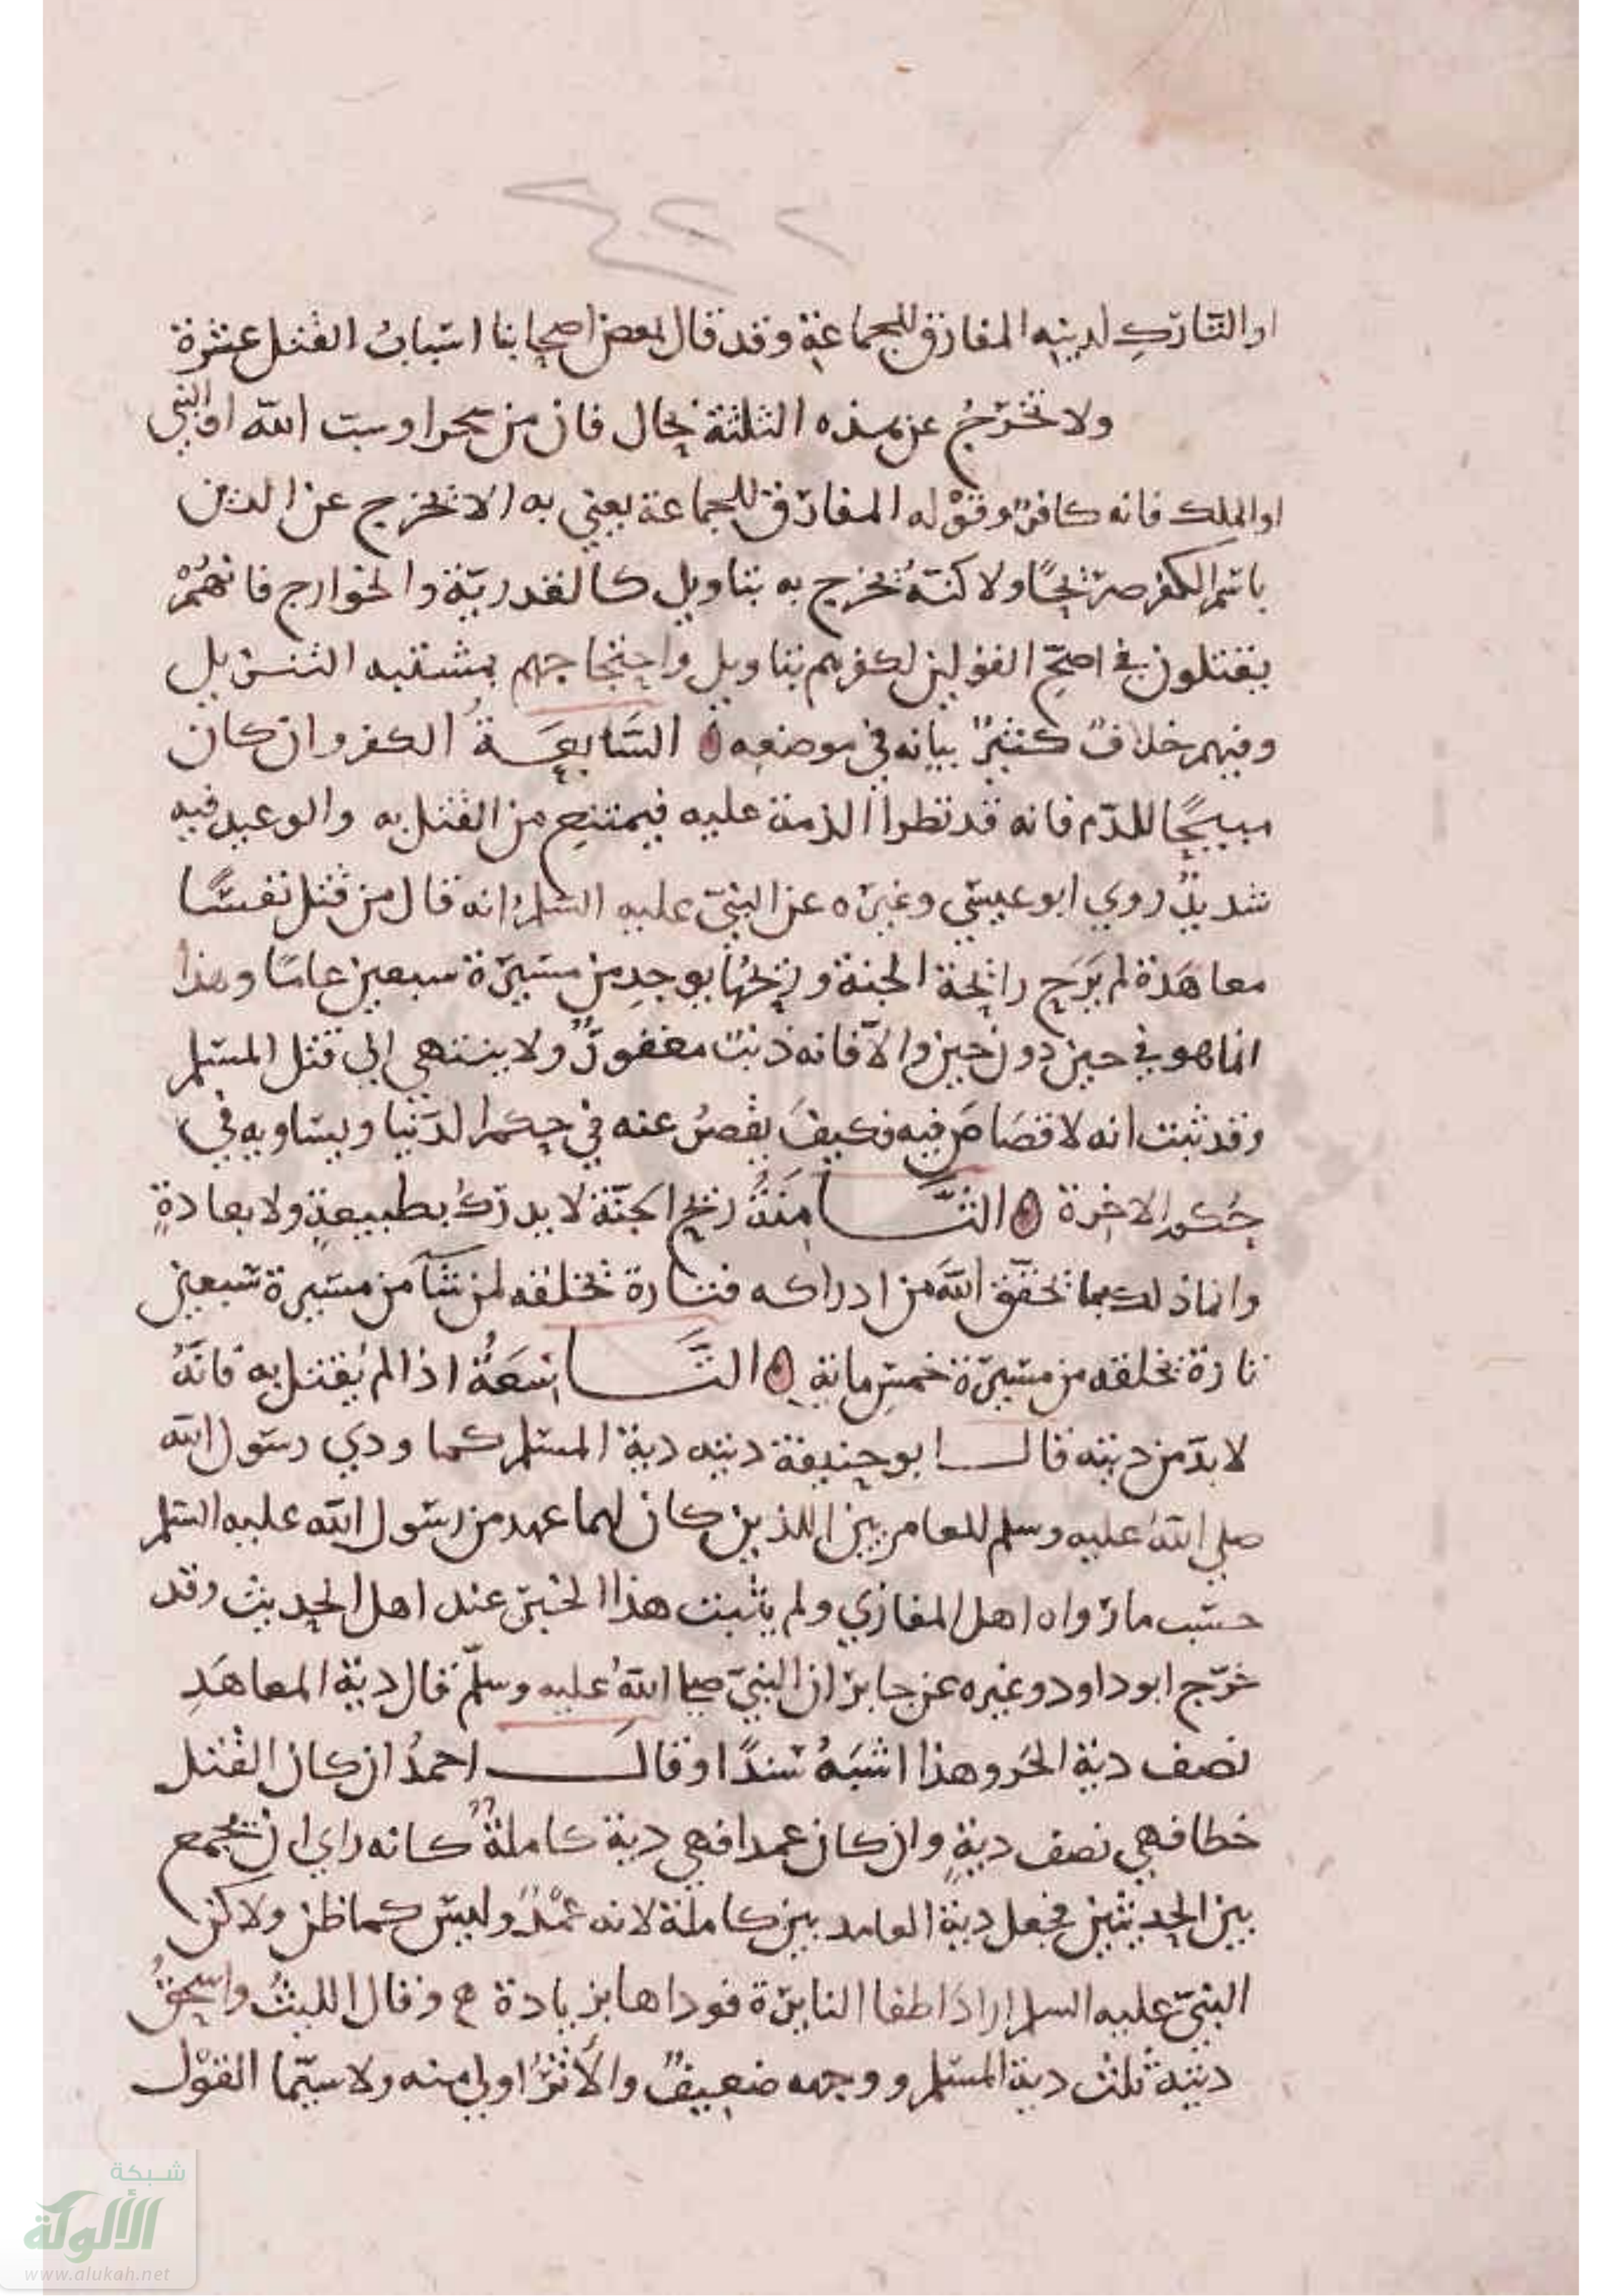 ٤٢٢
او التارك لدينه المفارق للجماعة وقد قال بعض اصحابنا اسباب القتل عشرة
ولا تخرج عن هذه الثلثة بحال فان من سحر او سب الله او النبي
او الملك فانه كافر وقوله المفارق للجماعة يعني به الا تخرج عن الدين
باسم الكفر صريحًا ولاكنه يخرج به بتاويل كالقدرية والخوارج فانهم
يقتلون في اصح القولين لكفرهم بتاويل واحتجاجهم بمشتبه التنزيل
وفيهم خلاف كثير بيانه في موضعه السابعة الكفر وان كان
مبيحًا للدم فانه قد تطرا الذمة عليه فيمتنع من القتل به والوعيد فيه
شديد روي ابو عيسي وغيره عن النبي عليه السلم انه قال من قتل نفسًا
معاهدة لم يرح رائحة الجنة وريحها يوجد من مسيرة سبعين عامًا وهذا
انما هو في حين دون حين والا فانه ذنب مغفور ولا ينتهي الي قتل المسلم
وقد ثبت انه لا قصاص فيه فكيف يقصر عنه في حكم الدنيا ويساويه في
حكم الاخرة الثامنة ريح الجنة لا يدرك بطبيعة ولا بعادة
وانما ذلك بما يخلق الله من ادراكه فتارة يخلقه لمن شآ من مسيرة سبعين
تارة يخلقه من مسيرة خمس ماية التاسعة اذا لم يقتل به فانه
لا بد من ديته قال ابو حنيفة ديته دية المسلم كما ودي رسول الله
صلي الله عليه وسلم للعامريين اللذين كان لهما عهد من رسول الله عليه السلم
حسب ما رواه اهل المغازي ولم يثبت هذا الخبر عند اهل الحديث وقد
خرج ابو داود وغيره عن جابر ان النبي صلي الله عليه وسلم قال دية المعاهد
نصف دية الحر وهذا اشبه سندًا وقال احمد ان كان القتل
خطا فهي نصف دية وان كان عمدا فهي دية كاملة كانه راي ان يجمع
بين الحديثين فجعل دية العامديين كاملة لانه عمد وليس كما ظن ولاكن
النبي عليه السلم اراد اطفا النايرة فوداها بزيادة وقال الليث واسحق
ديته ثلث دية المسلم ووجهه ضعيف والاثر اولي منه ولا سيما القول
شبكة
الألوكة
www.alukah.net